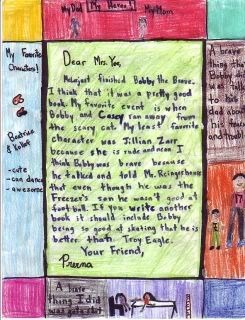 My Dad
My Heroes!
My Mom
My Favorite
Characters!
Beatrice
& Violet
-cute
-can dance
-awesome
Dear Mrs. Yoo,
I just finished Bobby the Brave.
I think that it was a pretty good
book. My favorite event is when
Bobby and Casey ran away from
the scary cat. My least favorite
character was Jillian Zarr
because she is rude and mean. I
think Bobby was brave because
he talked and told Mr. Rei
that even though he was the
Freezer's son he wasn't good at
football. If you write another
book it should include Bobby
being so good at skating that he is
better than Troy Eagle.
Your Friend,
Prerna
A brave
thing that
Bobby
was talk
to his
dad about
his
A brave
thing I did
was get a shot